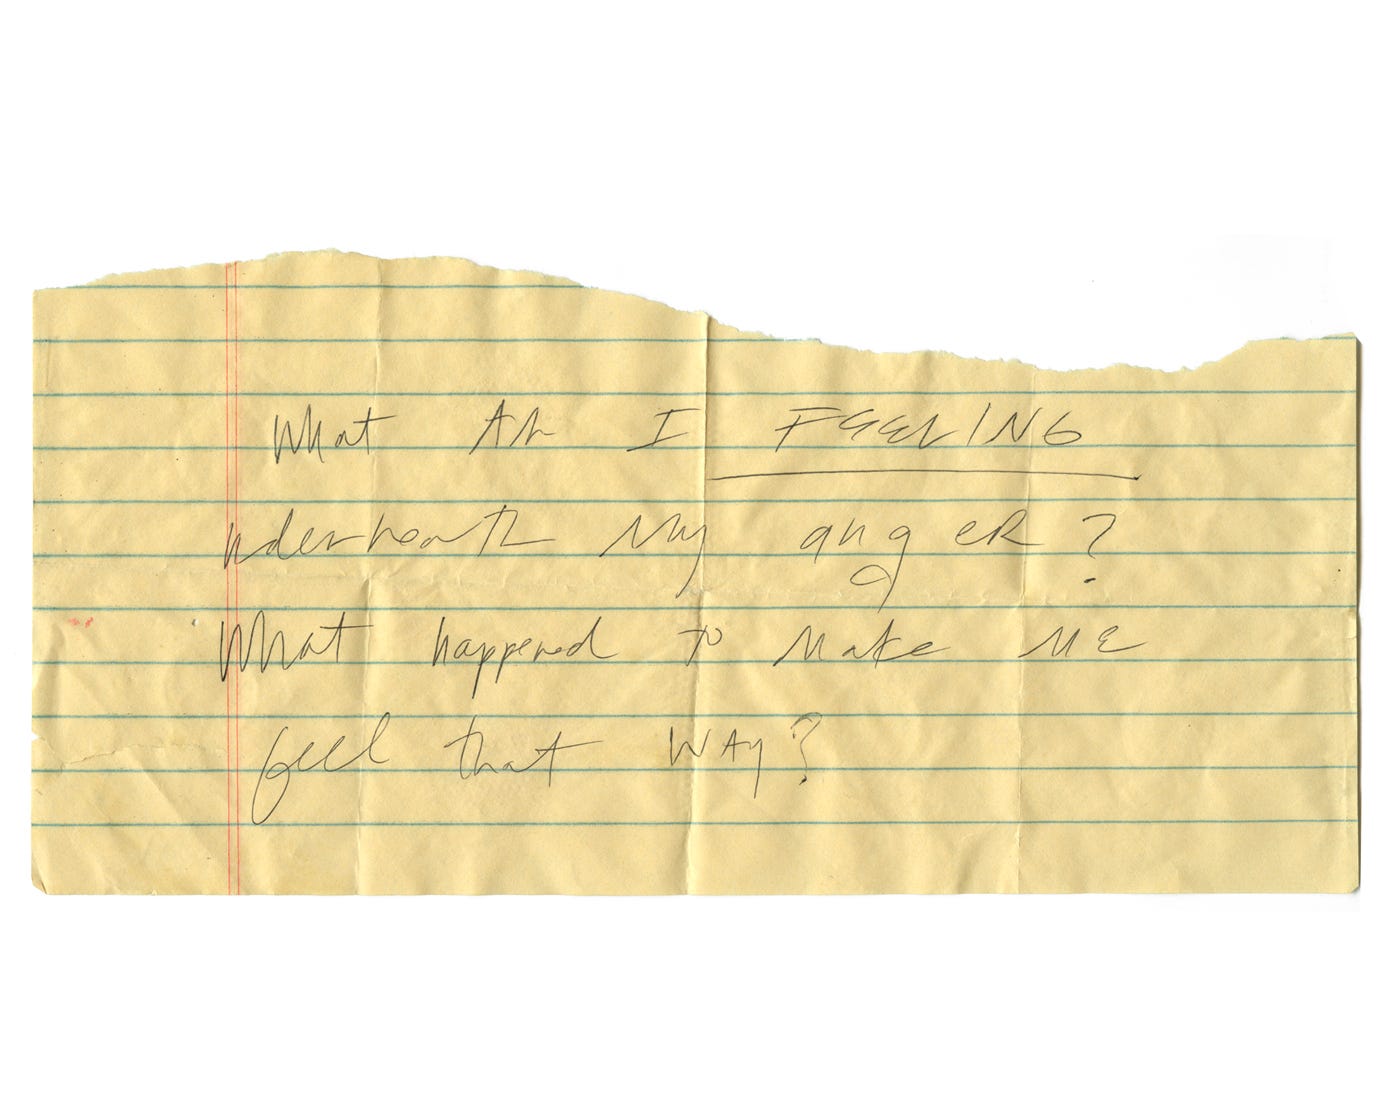 What Am I FEELING
underneath My angeR?
What happened to Make ME
feel that WAy?